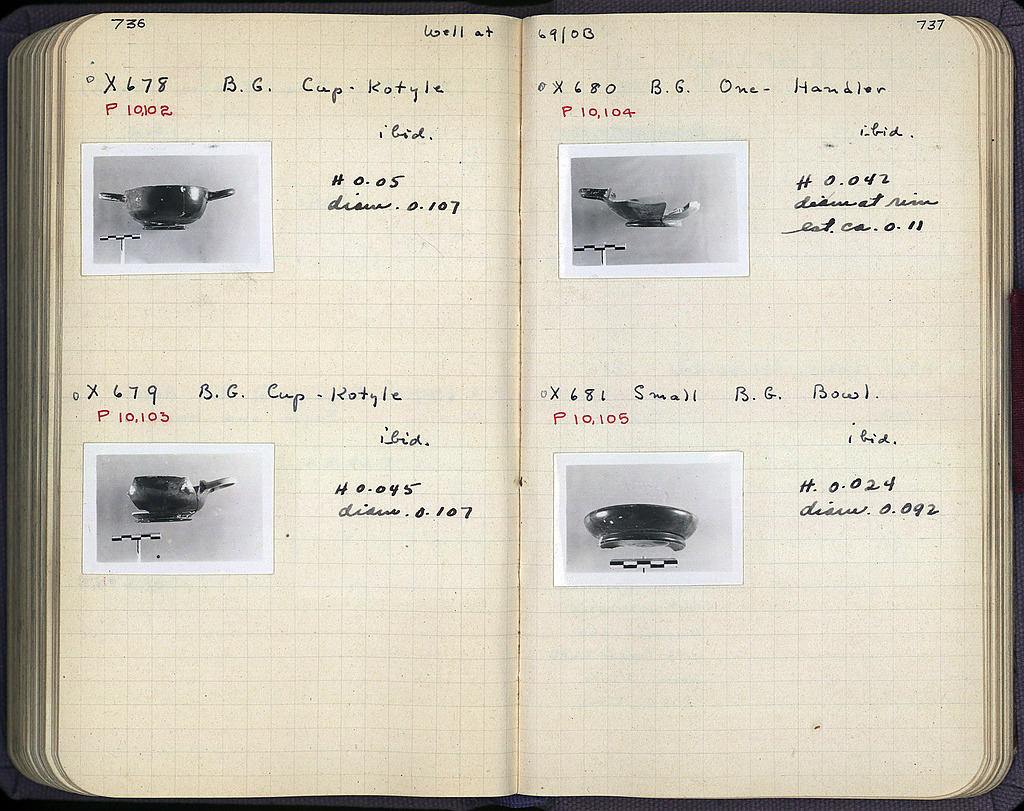 736
Well at
X 678 B.G. Cup-Kotyle
P 10,102
ibid.
H 0.05
diam. 0.107
X 679 B.G. Cup-Kotyle
P 10,103
ibid.
H 0.045
diam. 0.107
737
69/OB
X 680 B.G. One-Handler
P 10,104
ibid.
H 0.042
diam at rim
est. ca. 0.11
X 681 Small B.G. Bowl.
P 10,105
ibid.
H. 0.024
diam. 0.092